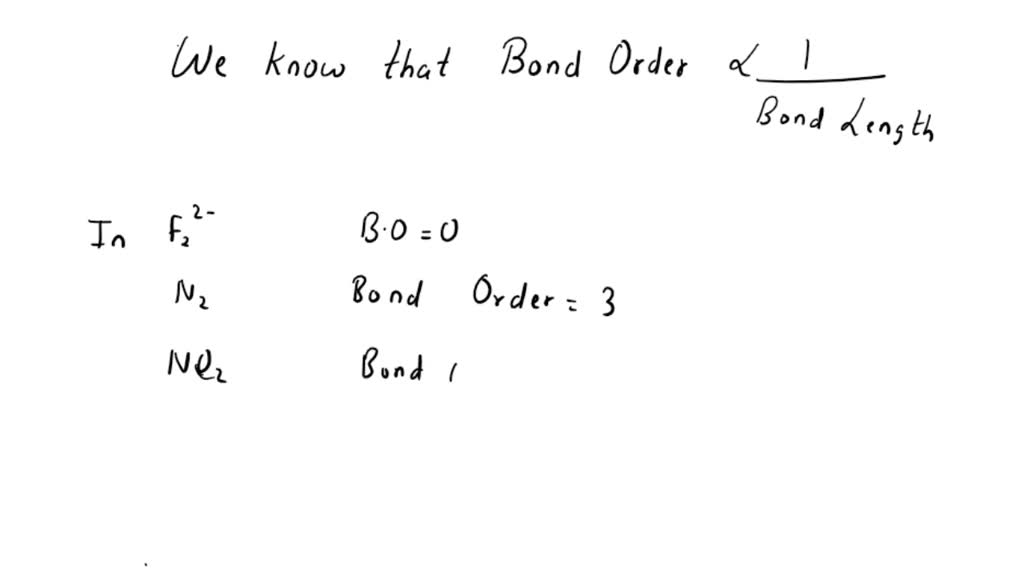 We know that Bond Order ∝ 1
Bond Length
In F₂²⁻ B.O = 0
N₂ Bond Order = 3
Ne₂ Bond